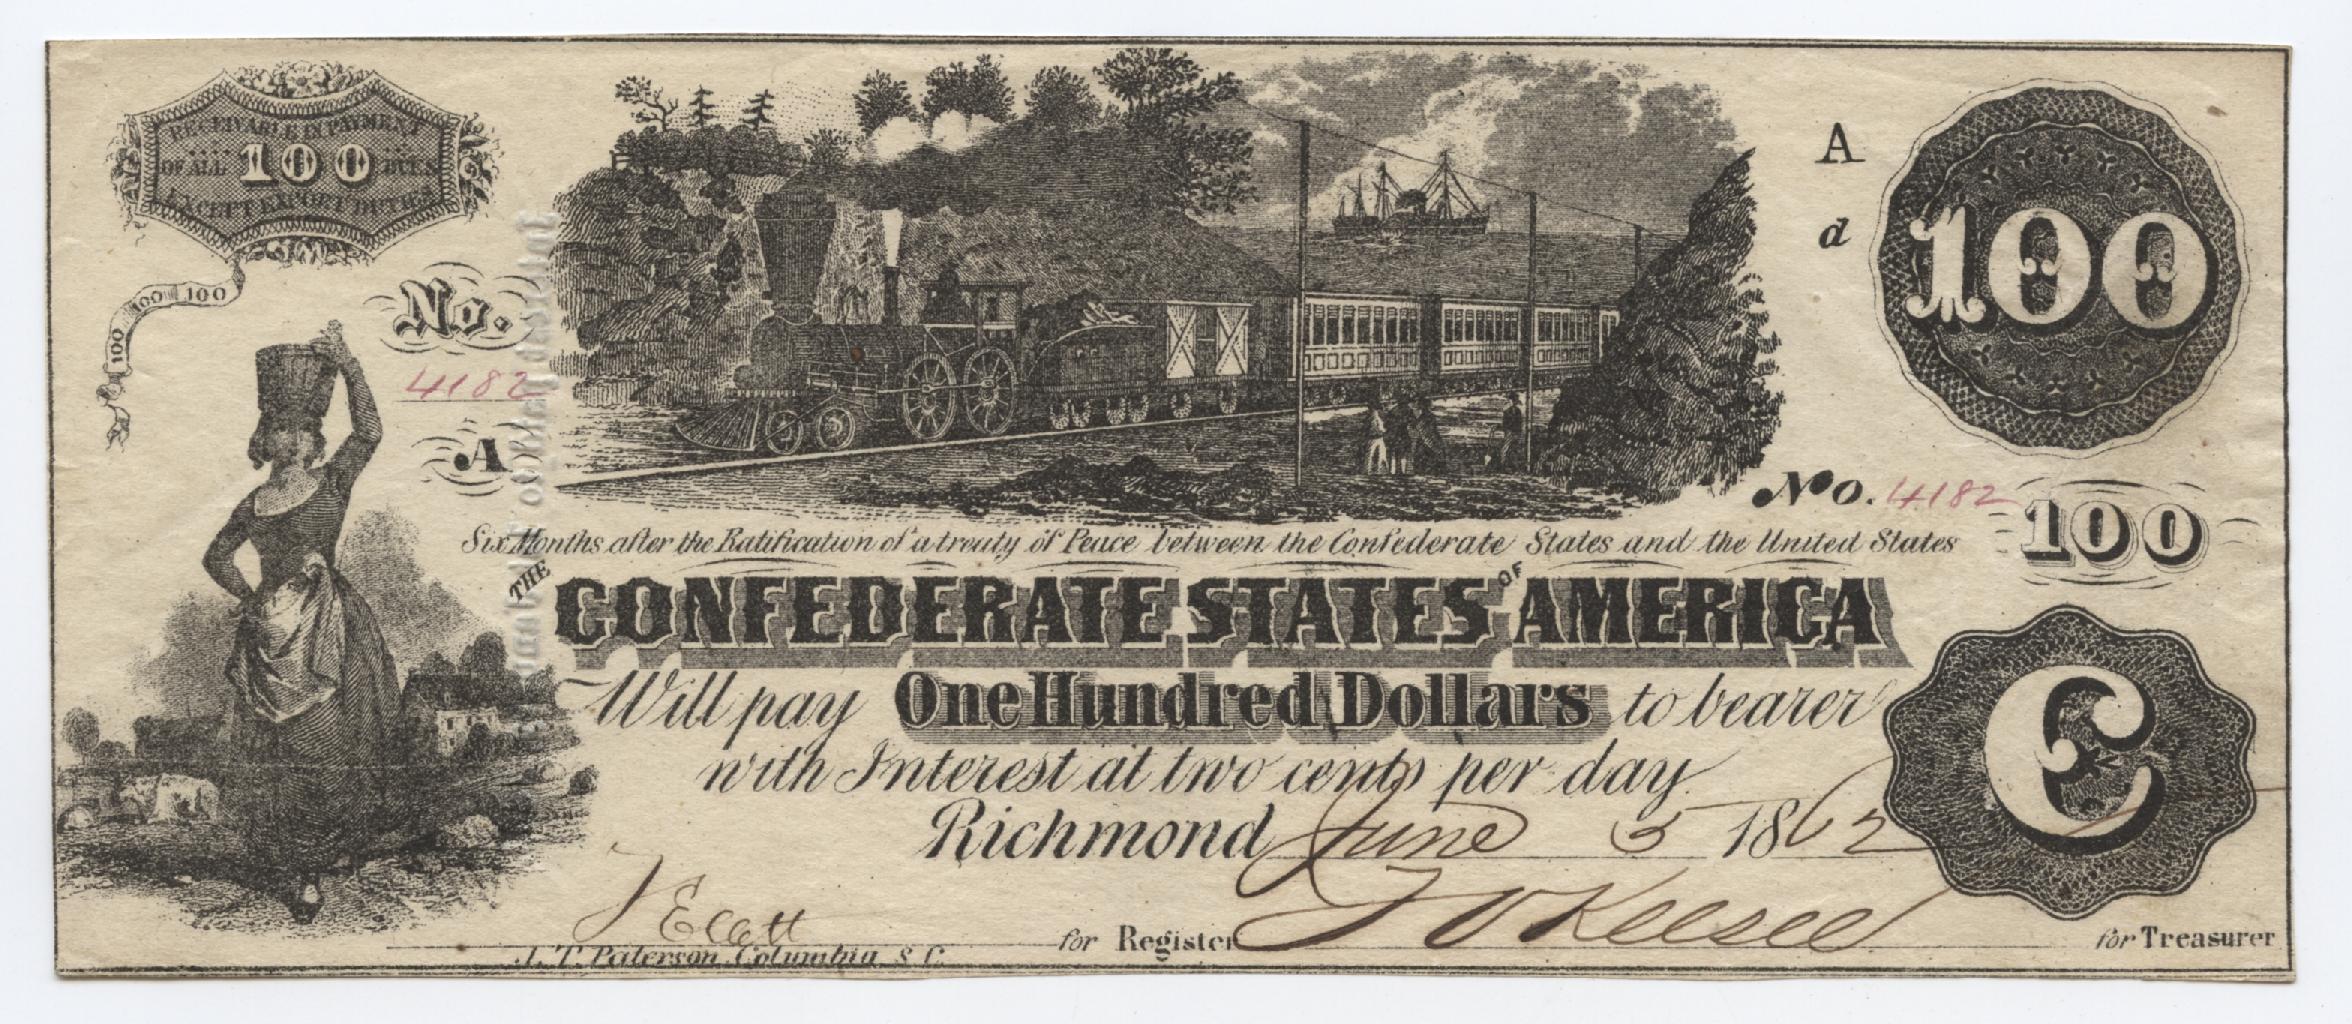 RECEIVABLE IN PAYMENT
OF ALL 100 DUES
EXCEPT EXPORT DUTIES
100 100 100
No.
4182
A
A
d
100
No. 4182
100
Six Months after the Ratification of a treaty of Peace between the Confederate States and the United States
THE CONFEDERATE STATES OF AMERICA
Will pay One Hundred Dollars to bearer
with Interest at two cents per day
Richmond June 5 1862
C
for Register
for Treasurer
J. T. Paterson Columbia S. C.